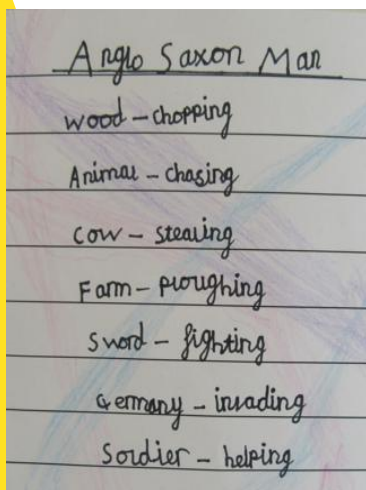 Anglo Saxon Man
wood - chopping
Animal - chasing
cow - stealing
Farm - ploughing
Sword - fighting
Germany - invading
Soldier - helping